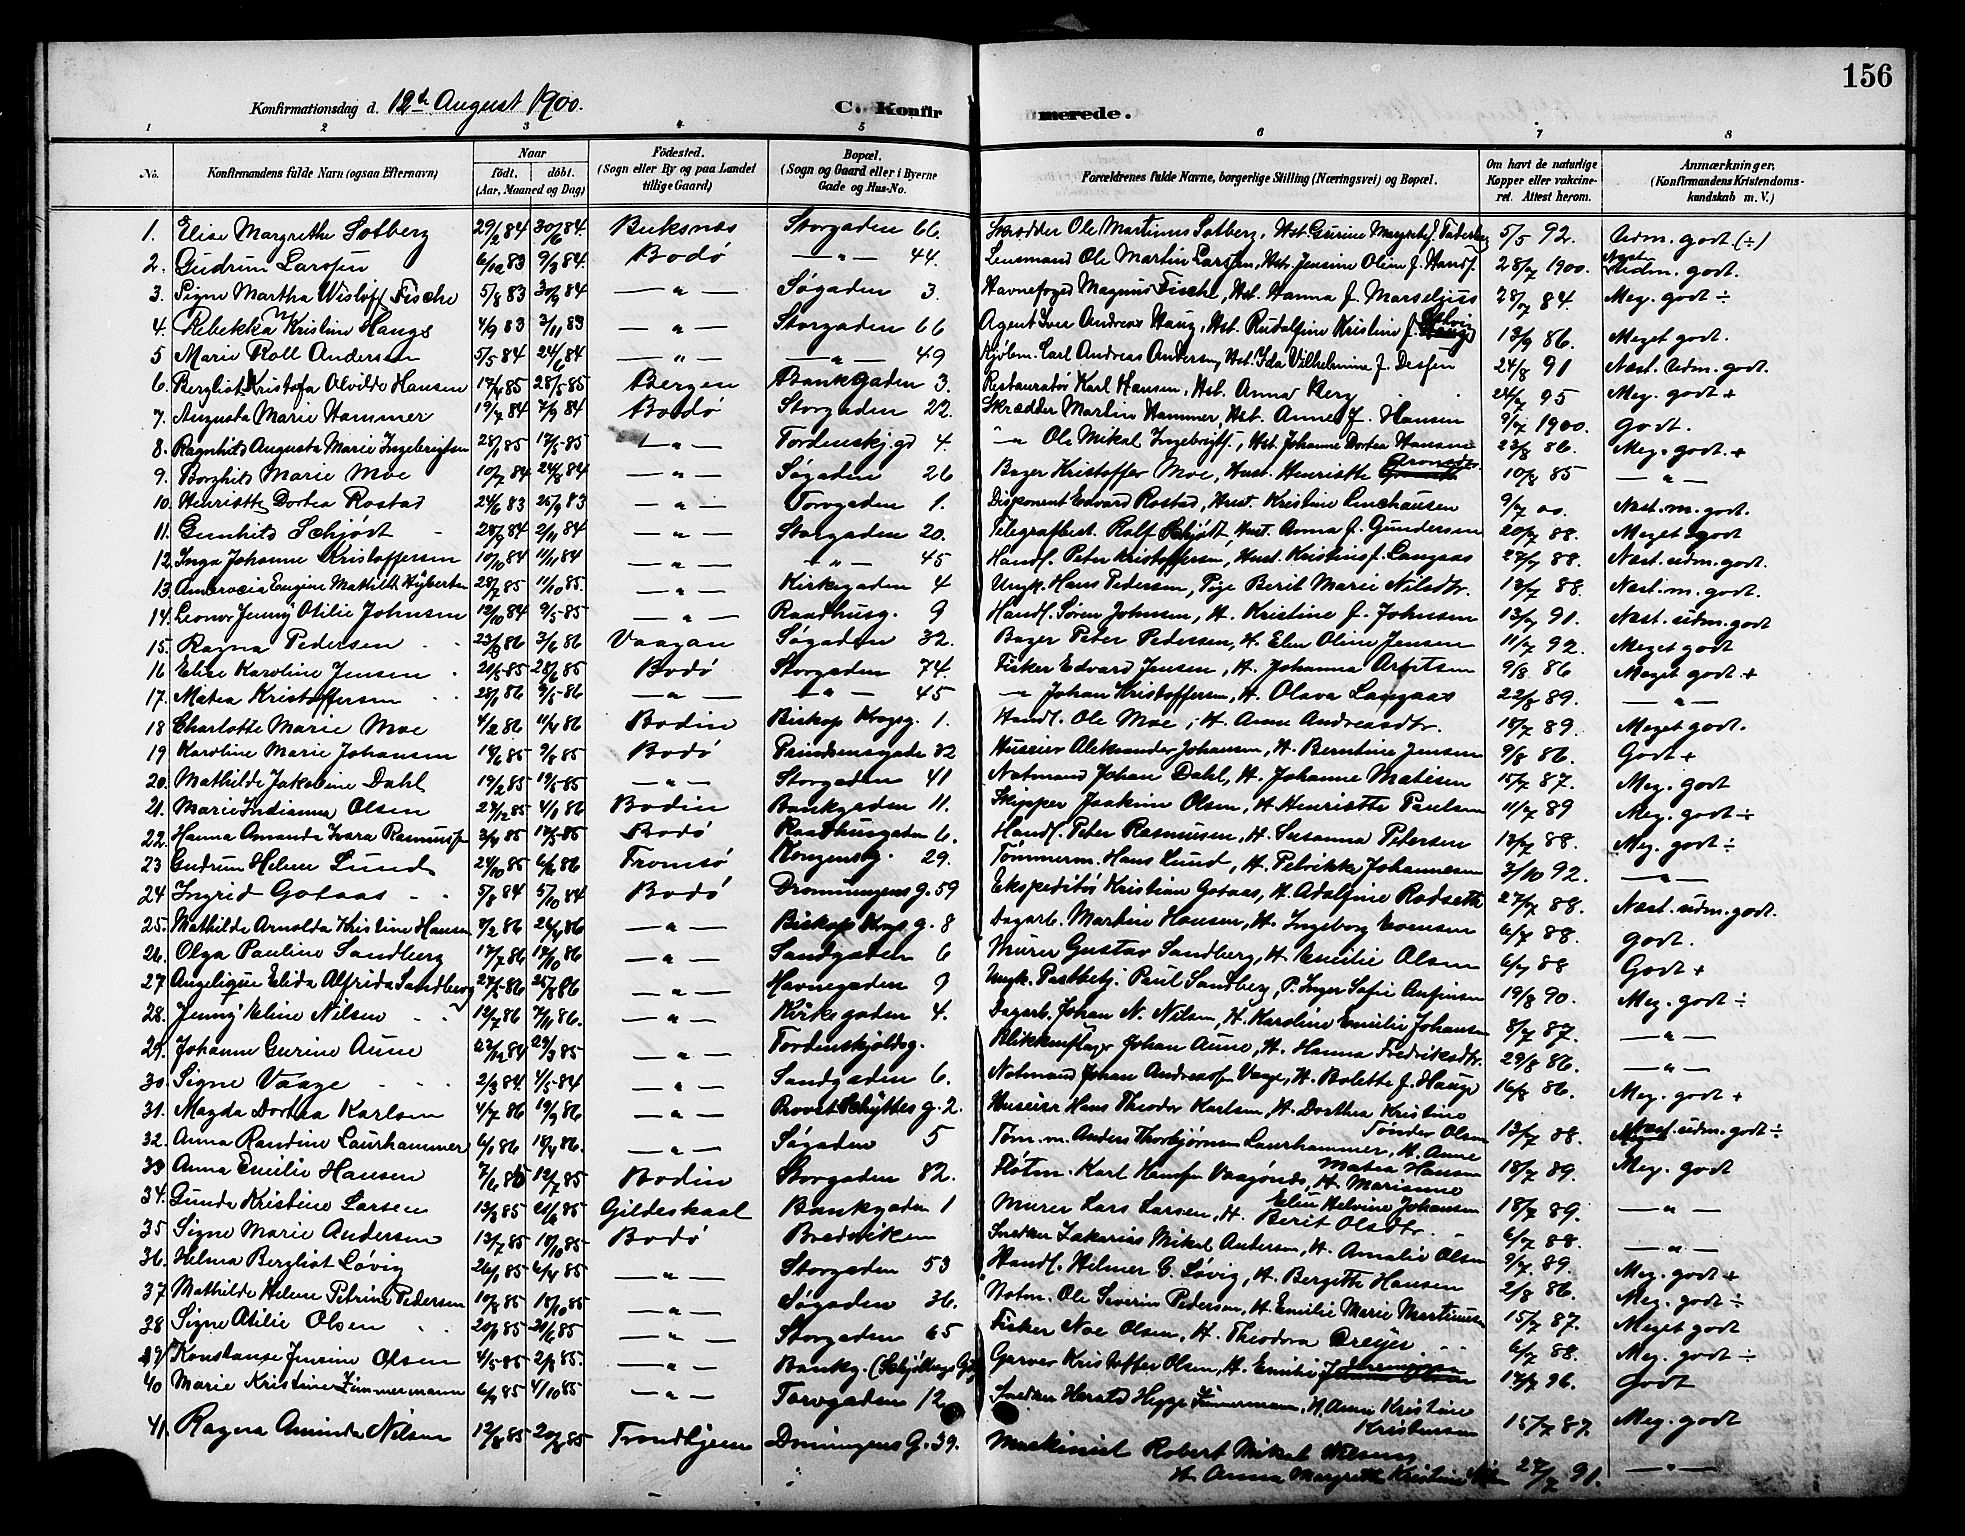 156
Konfirmationsdag d. 12te August 1900.
C. Konfirmerede.
1 2 3 4 5 6 7 8
No. Konfirmandens fulde Navn (ogsaa Efternavn) Naar født. døbt. (Aar, Maaned og Dag) Fødested. (Sogn eller By og paa Landet tillige Gaard) Bopæl. (Sogn og Gaard eller i Byerne Gade og Hus-No. Forældrenes fulde Navne, borgerlige Stilling (Næringsvei) og Bopæl. Om havt de naturlige Kopper eller vakcineret. Attest herom. Anmærkninger. (Konfirmandens Kristendomskundskab m. V.)
1. Elise Margrethe Solberg 29/2 84 30/6 84. Buksnæs Storgaden 66. Skrædder Ole Martinus Solberg, Hst. Gurine 5/5 92. Udm. godt (÷)
2. Gudrun Larssen 6/12 83 9/3 84. Bodø —"— 44. Lensmand Ole Martin Larssen, Hst. Jensine Oline f. 28/7 1900. Næst udm. godt.
3. Signe Martha Wisløff Fische 5/8 83 30/9 84 —"— Søgaden 3. Havnefoged Magnus Fische, Hst. Hanna f. 28/7 84. Meg. godt ÷
4. Rebekka Kristine Haugs 4/9 83 3/11 83 —"— Storgaden 66 Agent Iver Andreas Haug, Hst. Rudolfine Kristine f. 13/9 86. Meget godt.
5 Marie Roll Andersen 5/5 84 24/6 84 —"— —"— 49 Kjøbm. Carl Andreas Andersen, Hst. Ida Vilhelmine f. 24/8 91 Næst. Udm. godt.
6. Bergliot Kristofa Olvilde Hansen 17/4 85 28/5 85 Bergen Bankgaden 3. Restauratør Karl Hansen, Hst. Anna Berg 24/7 95 Meg. godt +
7. Augusta Marie Hammer 19/7 84 7/9 84 Bodø Storgaden 22. Skrædder Martin Hammer, Hst. Anne f. Hansen 9/7 1900. Godt.
8. Ragnhild Augusta Marie Ingebrigtsen 28/1 85 17/5 85 —"— Tordenskj. gd 4. —"— Ole Mikal Ingebrigts., Hst. Johanne Dortea Hansen 23/8 86. Meg. godt +
9. Borghild Marie Moe 10/7 84 24/8 84 —"— Søgaden 26 Bager Kristoffer Moe, Hust. Henriette 10/8 85 —"—
10. Henriette Dortea Rostad 24/6 83 25/9 83 —"— Torvgaden 1. Disponent Edvard Rostad, Hust. Kristine Linchausen 9/7 00. Næst. m. godt.
11. Gunhild Schjødt 28/9 84 2/11 84 —"— Storgaden 20. Telegrafbest. Rolf Schjødt, Hust. Anna f. Gundersen 20/7 88. Meget godt
12. Inga Johanne Kristoffersen 10/10 84 11/11 84 —"— —"— 45 Handl. Peter Kristoffersen, Hust. Kristine f. Langaas 27/7 88. Næst. udm. godt.
13. Ambrosia Eugine Mathilde Hybertsen 28/7 85 11/10 85. —"— Kirkegaden 4 Ungk. Hans Pedersen, Pige Berit Marie Nilsdtr. 13/7 88. Næst. m. godt.
14. Leonor Jenny Otilie Johnsen 12/10 84 9/5 85 —"— Raadhusg. 9 Handl. Søren Johnsen, H. Kristine f. Johnsen 13/7 91. Næst. udm. godt
15. Ragna Pedersen 23/3 86 3/6 86 Vaagan Søgaden 32. Bager Peter Pedersen, H. Elen Oline Jensen 11/7 92. Meget godt
16 Elise Karoline Jensen 20/5 85 28/6 85 Bodø Storgaden 74. Fisker Edvard Jensen, H. Johanna Arntsen 9/8 86 Meget godt +
17. Matea Kristoffersen 28/1 86 9/5 86 —"— —"— 45 —"— Johan Kristoffersen, H. Olava Langaas 22/8 89. —"—
18 Charlotte Marie Moe 4/2 86 11/4 86 Bodin Biskop Krogsg. 1. Handl. Ole Moe, H. Anne Andreasdtr. 18/7 89. Meget godt.
19 Karoline Marie Johansen 18/6 85 9/8 85 Bodø Prindsensgade 32 Huseier Aleksander Johansen, H. Berntine Jensen 9/8 86. Godt +
20. Mathilde Jakobine Dahl 19/2 85 19/5 85 —"— Storgaden 41 Notmand Johan Dahl, H. Johanne Matisen 15/7 87. Meg. godt
21. Marie Indianna Olsen 27/12 85 4/1 86 Bodin Bankgaden 11. Skipper Joakim Olsen, H. Henriette Paulsen 11/7 89 Meg. godt ÷
22. Hanna Amanda Ivara Rasmuss. 3/4 85 17/5 85 Bodø Raadhusgaden 6. Handl. Peter Rasmusen, H. Susanna Petersen 13/7 88. Meg. godt ÷
23 Gudrun Helene Lund 24/10 85 6/6 86 Tromsø Kongensg. 29. Tømmerm. Hans Lund, H. Petrikke Johannesen 3/10 92. —"—
24 Ingrid Gotaas 5/8 84 5/10 84 Bodø Dronningens g. 59 Ekspeditør Kristian Gotaas, H. Adolfine Rodseth 27/7 88. Næst. udm. godt.
25. Mathilde Arnolda Kristine Hansen 8/2 86 26/4 86 —"— Biskop Krogs g. 8 Dagarb. Martin Hansen, H. Ingeborg Evensen 6/7 88. Godt.
26. Olga Pauline Sandberg 17/7 86 17/10 86 —"— Sandgaden 6 Murer Gustav Sandberg, H. Emilie Olsen 6/7 88 Godt +
27 Angelique Elida Alfrida Sandberg 27/5 86 25/8 86 —"— Havnegaden 9 Ungk. Postbetj. Paul Sandberg, P. Inger Sofie Anfinsen 19/8 90. Meg. godt ÷
28. Jenny Eline Nilsen 12/7 86 7/11 86. —"— Kirkegaden 4. Dagarb. Johan N. Nilsen, H. Karoline Emilie Johansen 8/7 87. —"—
29. Johanne Gurine Aune 27/12 84 29/3 85 —"— Tordenskjoldsg. Blikkenslager Johan Aune, H. Hanna Fredriksdtr. 29/8 86. —"—
30. Signe Vaage 2/3 84. 4/5 84 —"— Sandgaden 6. Notmand Johan Andreas Vaage, H. Bolette f. Hauge 16/8 86. Meg. godt +
31. Magda Dortea Karlsen 4/7 86 19/9 86 —"— Provst Schyttes g. 2. Huseier Hans Theodor Karlsen, H. Dorthea Kristine Tønder Olsen 13/7 88. Næst. udm. godt ÷
32. Anna Randine Laurhammer 6/1 86 18/4 86. —"— Søgaden 5 Tøm. m. Anders Thorbjørnsen Laurhammer, H. Anne Matea Hansen 18/7 89. Meg. godt
33 Anna Emilie Hansen 7/6 85 12/7 85 Bodin Storgaden 82. Fløtm. Karl Hansen Vaagønes, H. Marianne Elen Helvine Johansen 18/7 89. —"—
34. Gunda Kristine Larsen 13/3 85 21/6 85 Gildeskaal Bankgaden 1 Murer Lars Larsen, H. Berit Olsdtr. 6/7 88. —"—
35 Signe Marie Andersen 13/7 85 18/10 85 Bodø Bradviken Snedker Zakarias Mikal Andersen, H. Amalie Olsen 9/7 89. Meg. godt +
36. Helma Bergliot Løvig 26/1 85 6/4 85 —"— Storgaden 53 Handl. Helmer C. Løvig, H. Bergitte Hansen 2/8 86. Meg. godt ÷
37 Mathilde Helene Petrine Pedersen 10/8 85 18/10 85 —"— Søgaden 36. Notm. Ole Severin Pedersen, H. Emilie Marie Martinusen 15/7 87. Meget godt
38 Signe Otilie Olsen 20/1 85 21/6 85 —"— Storgaden 65 Fisker Noe Olsen, H. Theodora Dreyer 6/7 88. Meg. godt ÷
39 Konstanse Jensine Olsen 4/5 85 2/8 85. —"— Bankg. Garver Kristoffer Olsen, H. Emilie 17/7 96. Godt
40 Marie Kristine Zimmermann 6/9 85 4/10 85 —"— Torvgaden 12 Snedker Herstad Higge Zimmermann, H. Anne Kristine Kristensen 15/7 87. Meg. godt
41. Ragna Aminda Nilsen 12/8 85 20/8 85 Trondhjem Dronningens G. 39. Maskinist Robert Mikal Nilsen,
H. Anna Margrethe Kristine 27/7 91. —"—